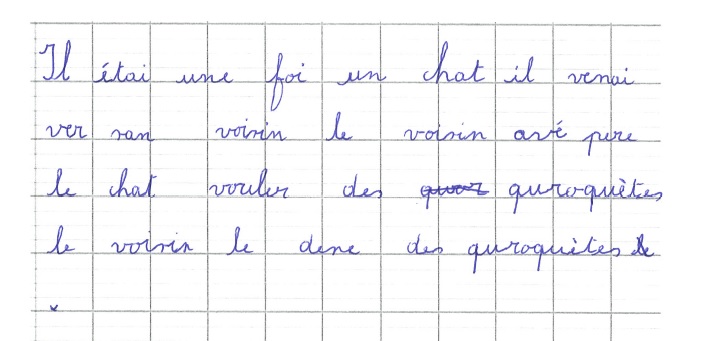 Il étai une foi un chat il venai
ver san voisin le voisin avé pere
le chat vouler des quroquètes
le voisin le dene des quroquètes